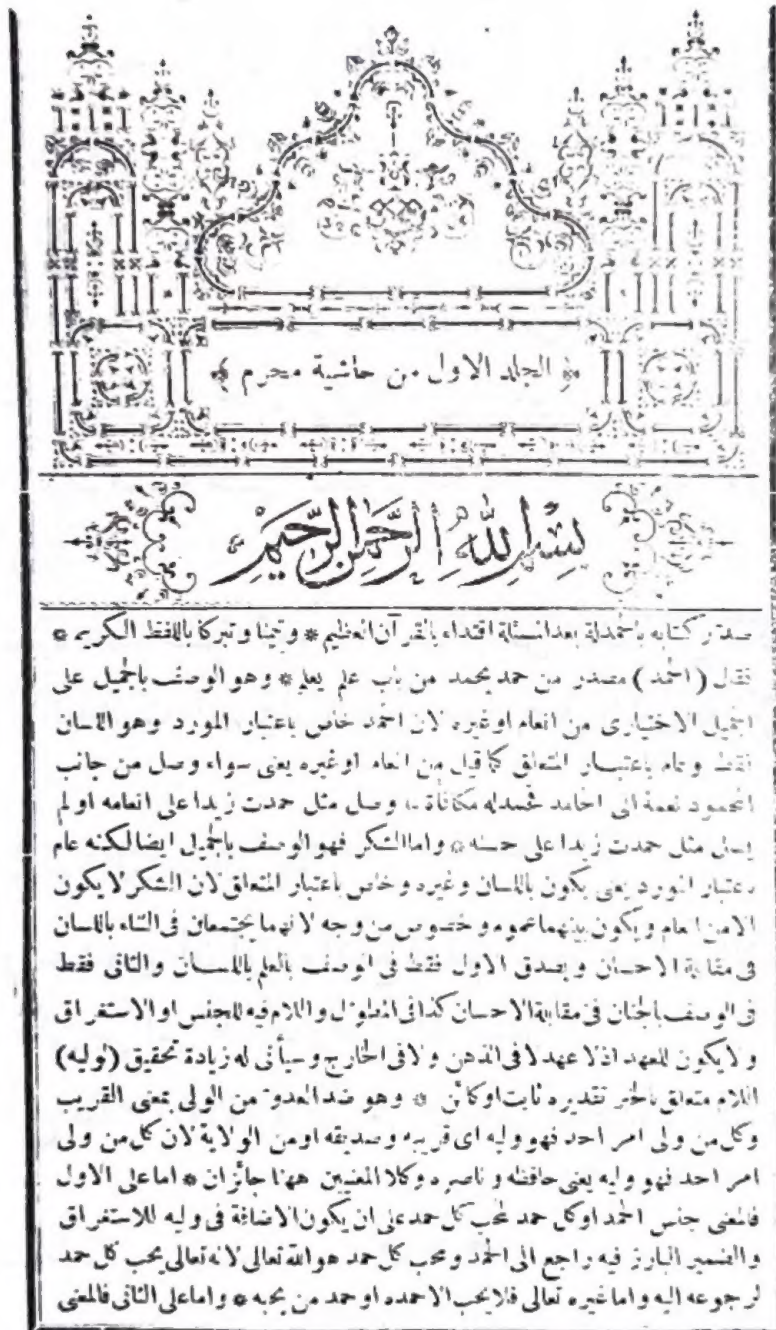 ﴿ الجلد الاول من حاشية محرم ﴾
بسم الله الرحمن الرحيم
صدر كتابه بالحمدلة بعد البسملة اقتداء بالقرآن العظيم * وتيمنا وتبركا باللفظ الكريم *
فقال (الحمد) مصدر من حمد يحمد من باب علم يعلم * وهو الوصف بالجميل على
الجميل الاختيارى من انعام اوغيره لان الحمد خاص باعتبار المورد وهو اللسان
فقط وعام باعتبار المتعلق كما قيل من انعام اوغيره يعنى سواء وصل من جانب
المحمود نعمة الى الحامد فحمدله مكافأة وصل مثل حمدت زيدا على انعامه اولم
يصل مثل حمدت زيدا على حسنه * واما الشكر فهو الوصف بالجميل ايضا لكنه عام
باعتبار المورد يعنى يكون باللسان وغيره وخاص باعتبار المتعلق لان الشكر لايكون
الامن انعام ويكون بينهما عموم وخصوص من وجه لانهما يجتمعان فى الثناء باللسان
فى مقابلة الاحسان ويصدق الاول فقط فى الوصف بالعلم باللسان والثانى فقط
فى الوصف بالجنان فى مقابلة الاحسان كذا فى المطول واللام فيه للجنس او الاستغراق
ولايكون للعهد اذلا عهد لا فى الذهن ولا فى الخارج وسيأتى له زيادة تحقيق (لوليه)
اللام متعلق بالخبر تقديره ثابت اوكائن * وهو ضد العدو من الولى بمعنى القريب
وكل من ولى امر احد فهو وليه اى قريبه وصديقه اومن الولاية لان كل من ولى
امر احد فهو وليه يعنى حافظه وناصره وكلا المعنيين ههنا جائزان * اما على الاول
فالمعنى جنس الحمد اوكل حمد لمحب كل حمد على ان يكون الاضافة فى وليه للاستغراق
والضمير البارز فيه راجع الى الحمد ومحب كل حمد هو الله تعالى لانه تعالى يحب كل حمد
لرجوعه اليه واما غيره تعالى فلايحب الاحمده اوحمد من يحبه * واما على الثانى فالمعنى